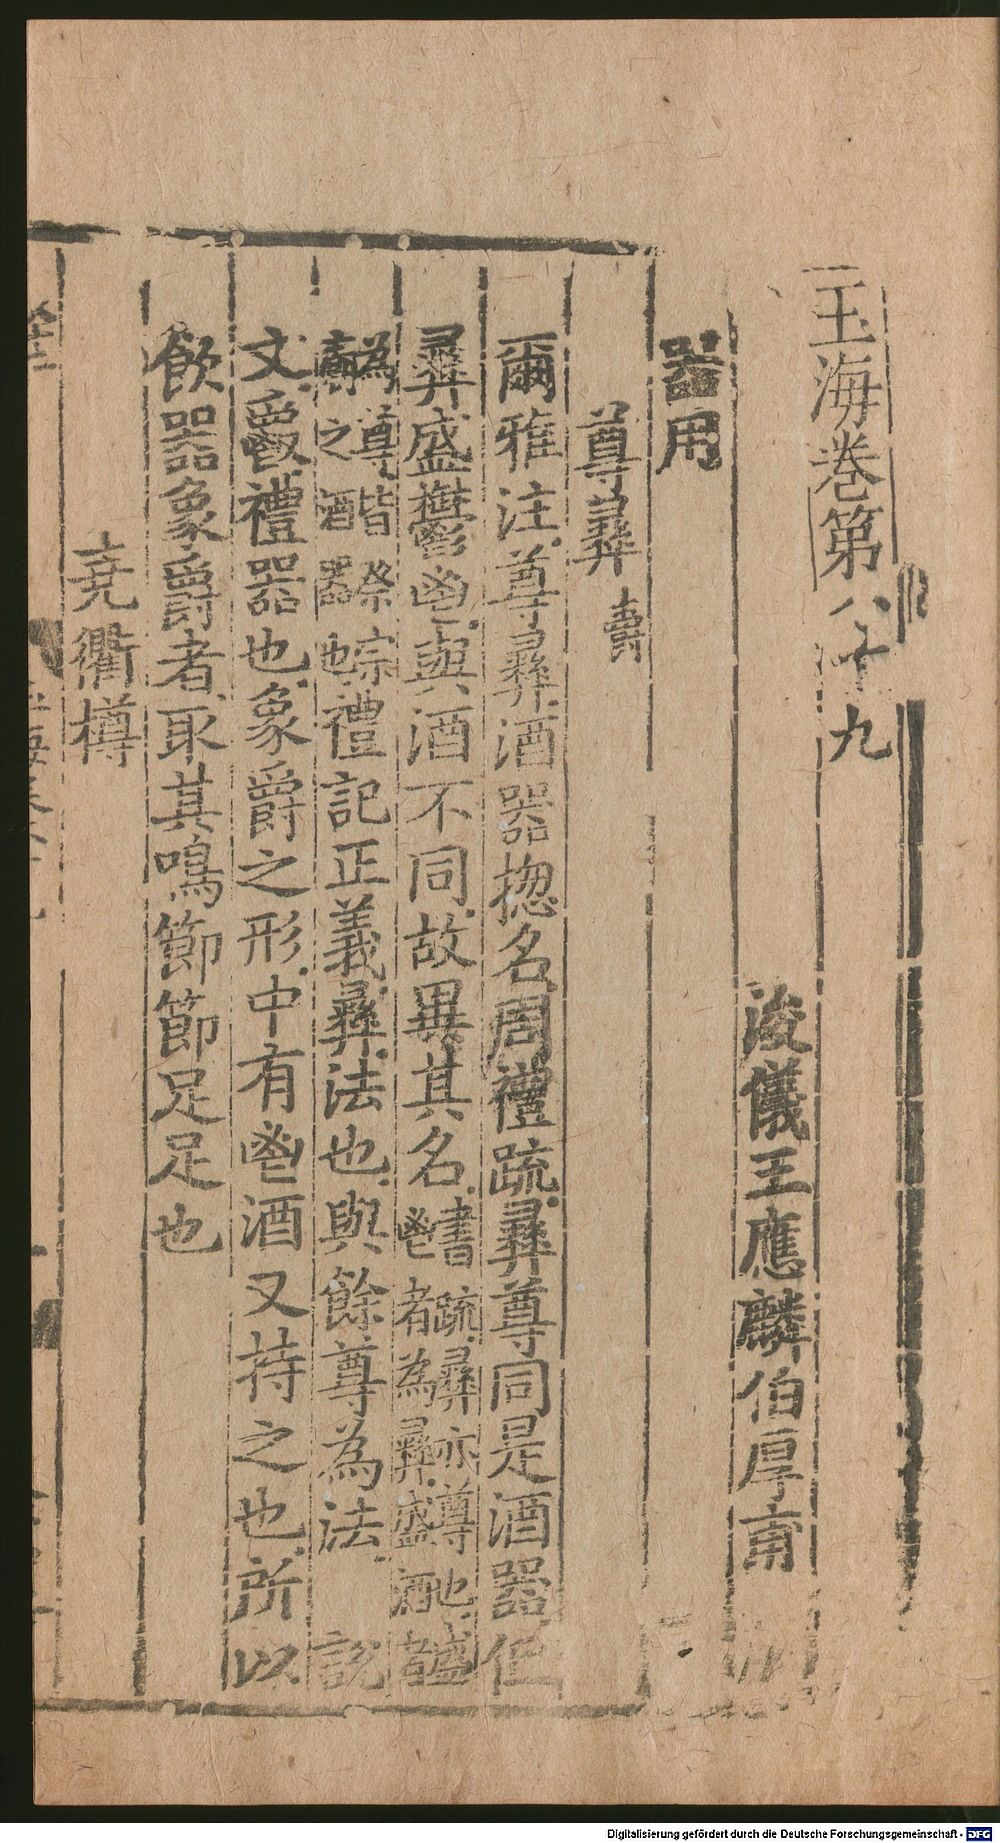 玉海卷第八十九
浚儀王應麟伯厚甫
器用
尊彝 爵
爾雅注尊彝酒器揔名周禮疏彝尊同是酒器但
彝盛鬱鬯與酒不同故異其名書疏彝亦尊也盛鬯者為彝盛酒者
為尊皆祭宗廟之酒器也禮記正義彝法也與餘尊為法 說
文爵禮器也象爵之形中有鬯酒又持之也所以
飲器象爵者取其鳴節節足足也
堯衢樽
Digitalisierung gefördert durch die Deutsche Forschungsgemeinschaft - DFG